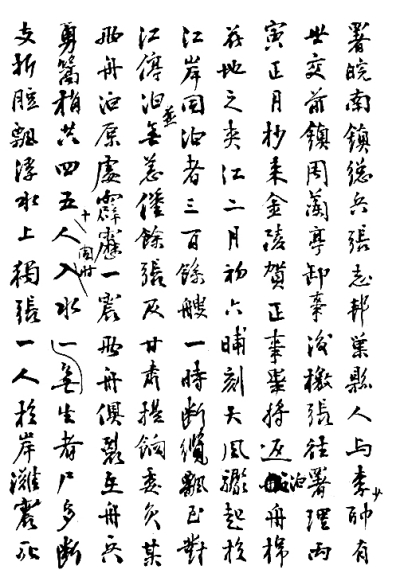 署皖南鎮總兵張志邦巢縣人与李少帥有
世交前鎮周蘭亭卸事後檄張往署理丙
寅正月杪來金陵賀正事畢將返泊舟棉
花地之夾江二月初六晡刻大風驟起於
江岸同泊者三百餘艘一時斷纜飄至對
江停泊並無恙僅餘張及甘肅提餉委員某
兩舟泊原處霹靂一震兩舟俱裂在舟兵
勇篙梢共四五十人入水一無生者尸多斷
支折脰飄浮水上獨張一人於岸灘震死